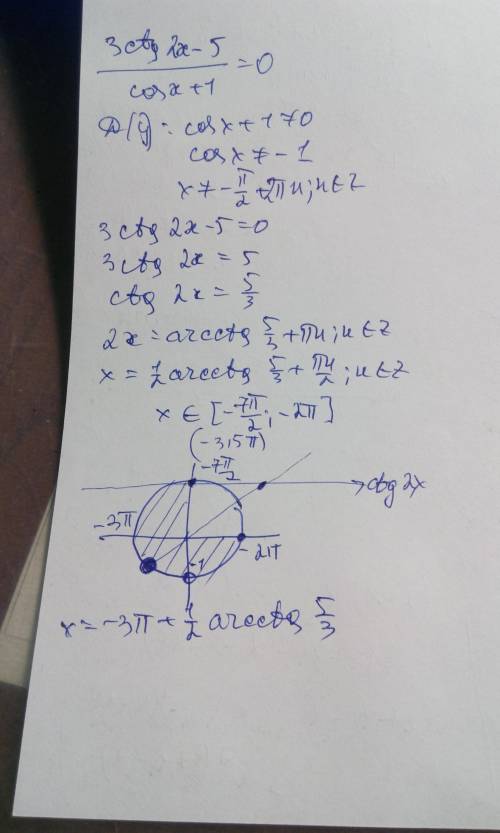 (3ctg 2x-5)/(cosx+1) =0
D(y): cosx+1≠0
cosx≠-1
x≠-π/2+2πn; n∈Z
3ctg 2x-5=0
3ctg 2x=5
ctg 2x=5/3
2x=arcctg 5/3+πn; n∈Z
x=1/2 arcctg 5/3+πn/2; n∈Z
x∈[-7π/2; -2π]
(-3,5π)
-7π/2
ctg 2x
-3π
-2π
-1
x=-3π+1/2 arcctg 5/3